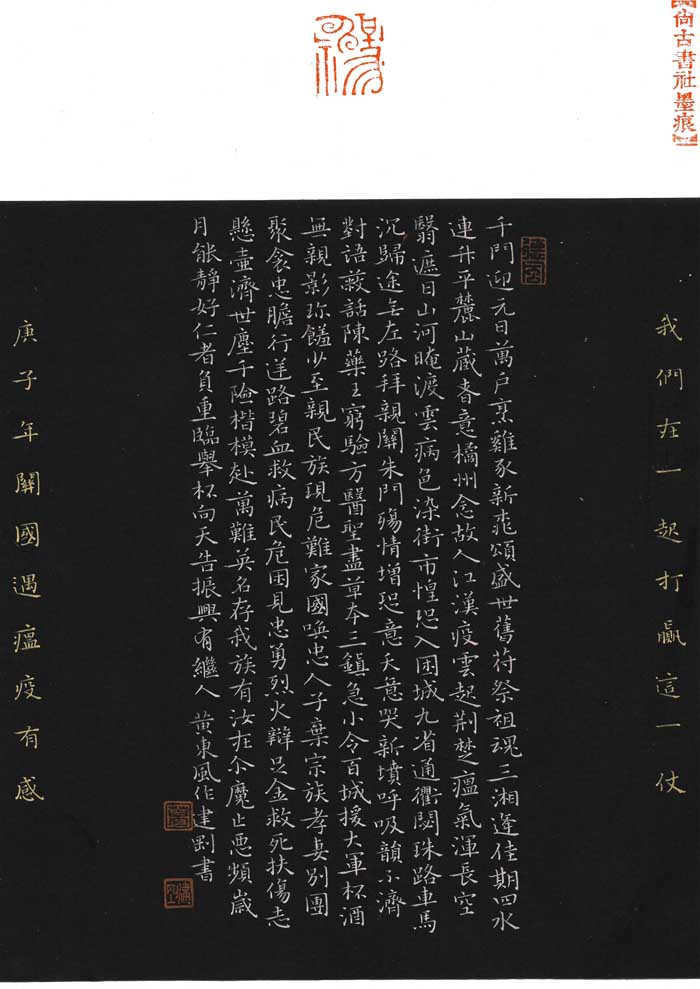 尚古書社墨痕
我們在一起打贏這一仗
千門迎元日萬戶烹雞豕新桃頌盛世舊苻祭祖魂三湘逢佳期四水
連升平麓山藏春意橘州念故人江漢疫雲起荆楚瘟氣渾長空
翳遮日山河晻渡雲病色染街市惶恐入困城九省通衢閟珠路車馬
沉歸途無左路拜親關朱門殤情增恐意天意哭新墳呼吸韻不濟
對語蔽話陳藥王窮驗方醫聖盡草本三鎮急小令百城援大軍杯酒
無親影珎饈少至親民族現危難家國喚忠人子棄宗族孝妻別團
聚衾忠膽行逆路碧血救病民危困見忠勇烈火辯足金救死扶傷志
懸壺濟世塵千險楷模赴萬難英名存我族有汝在尒魔止惡頻歲
月能靜好仁者負重臨舉杯向天告振興有繼人 黄東風作建剛書
庚子年關國遇瘟疫有感